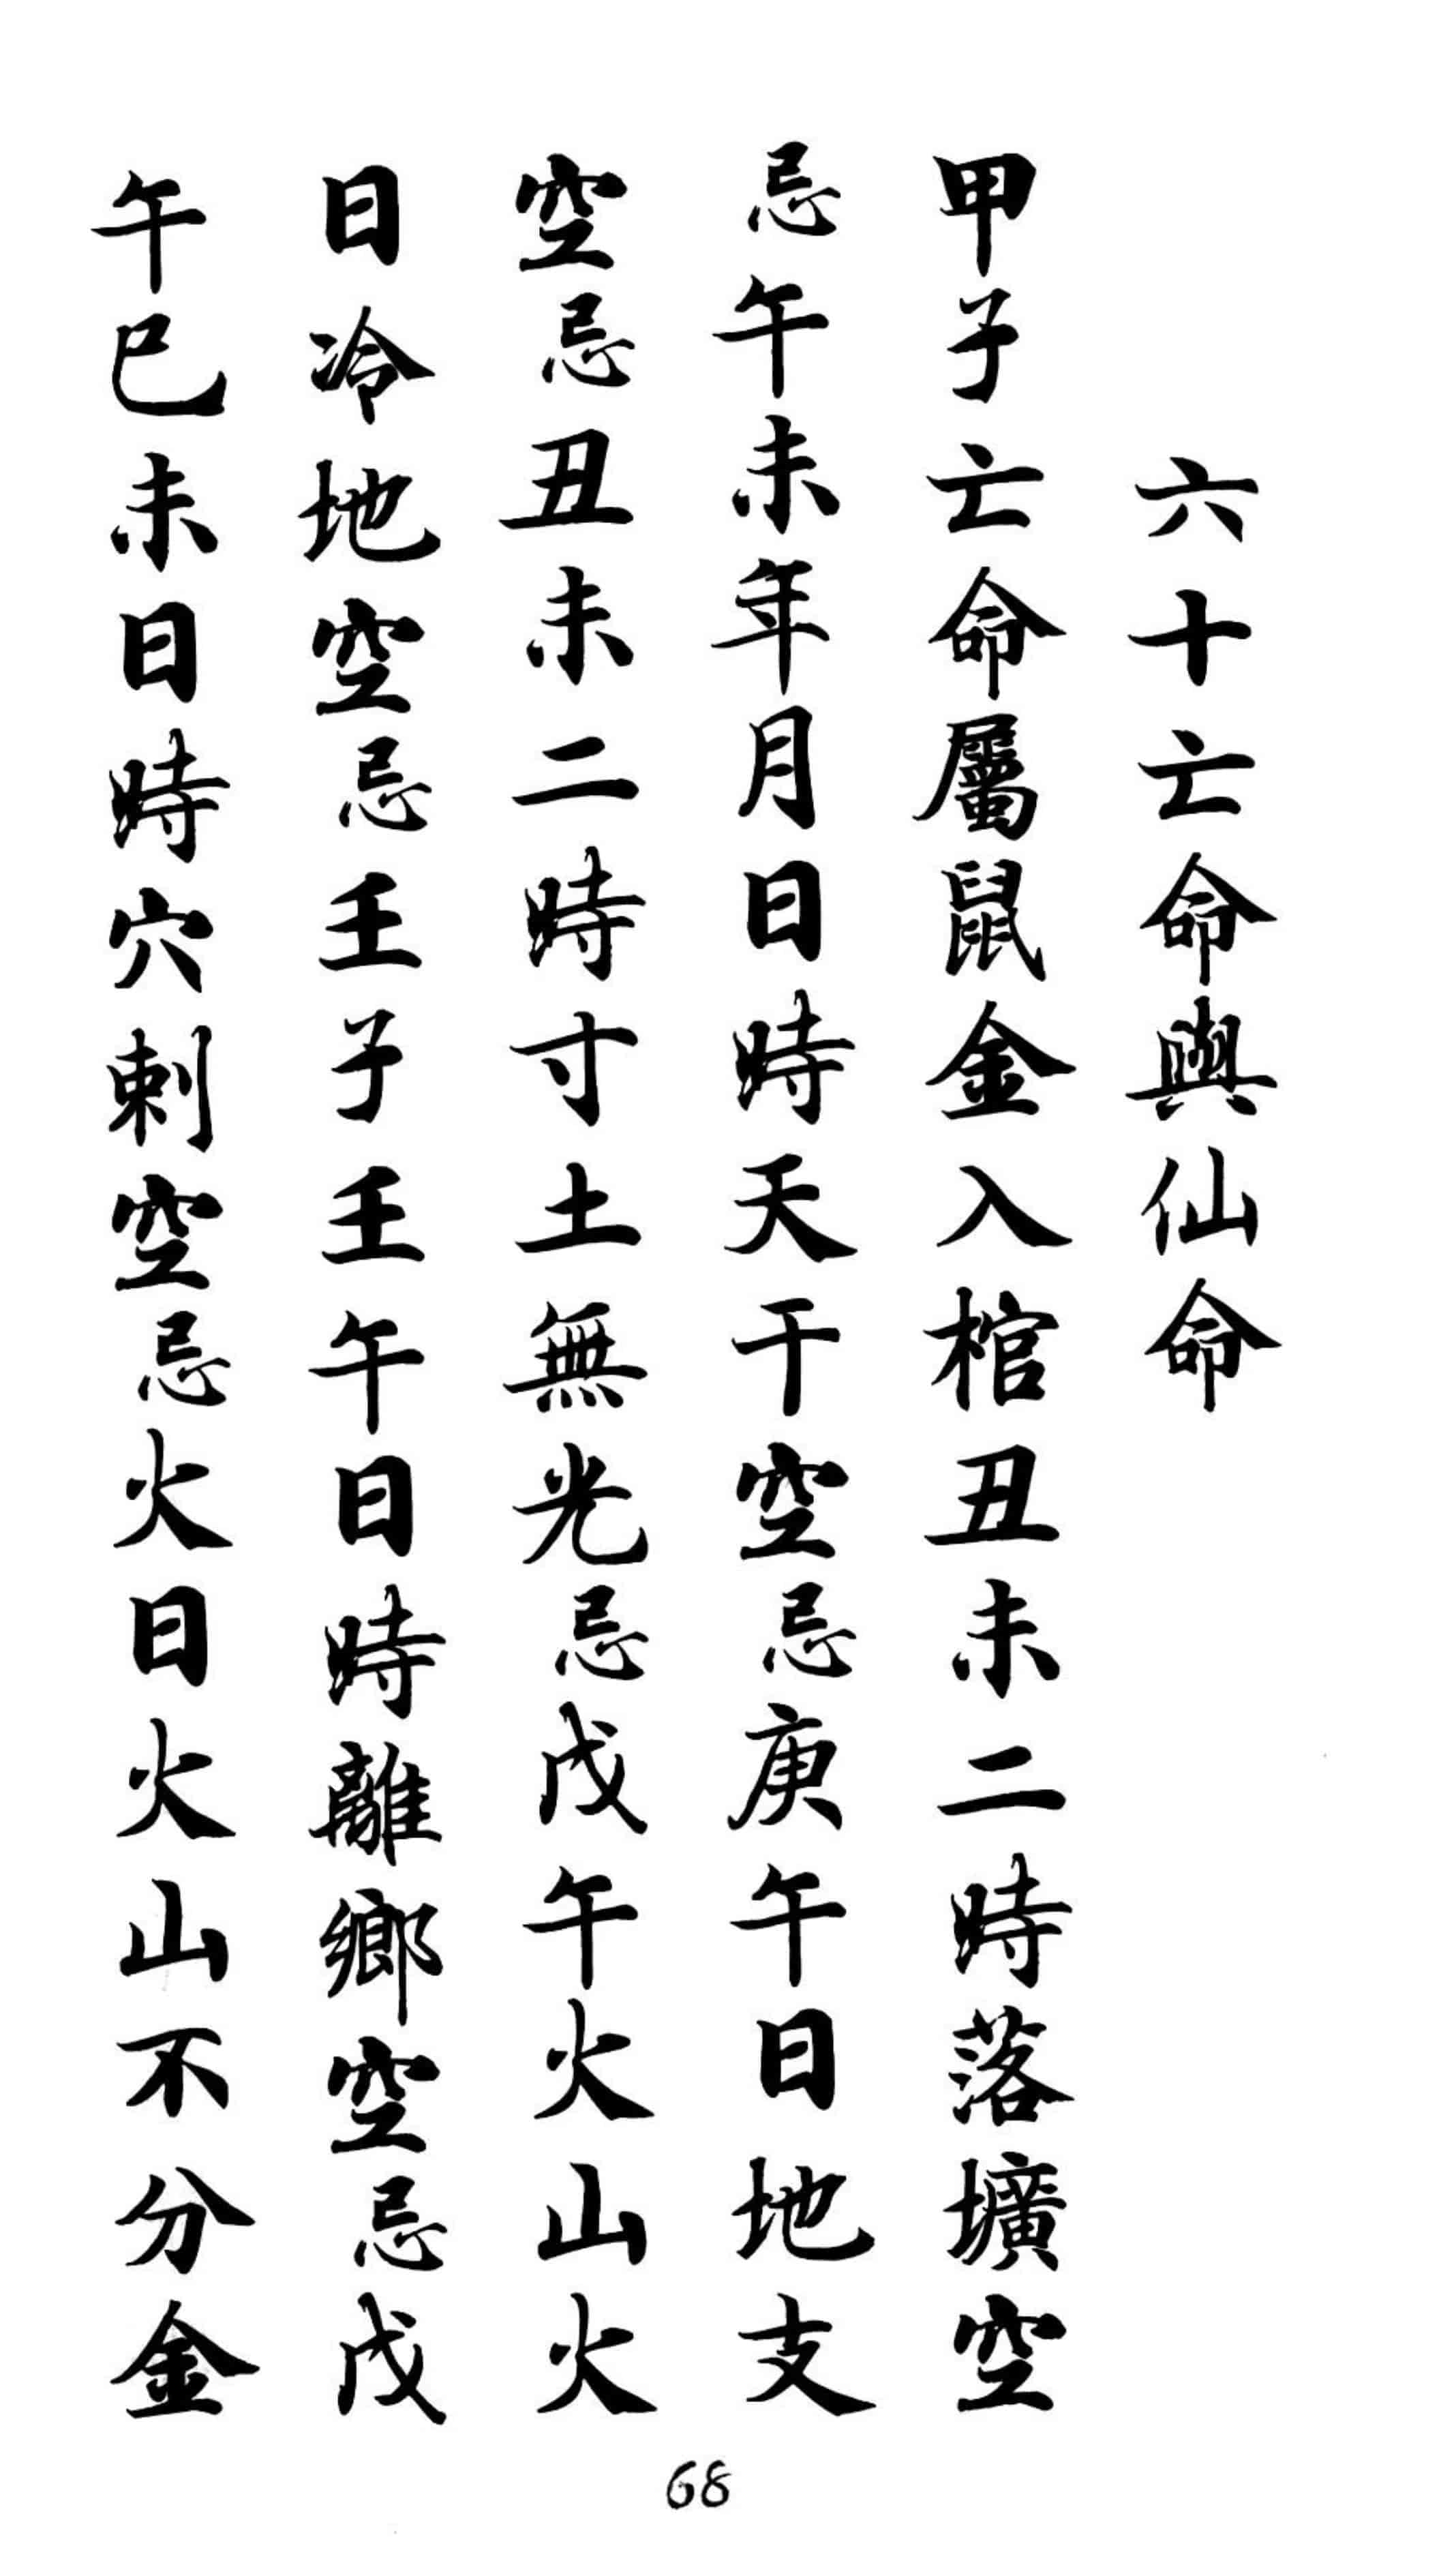 六十亡命與仙命
甲子亡命屬鼠金入棺丑未二時落壙空
忌午未年月日時天干空忌庚午日地支
空忌丑未二時寸土無光忌戊午火山火
日冷地空忌壬子壬午日時離鄉空忌戊
午巳未日時穴刺空忌火日火山不分金
68